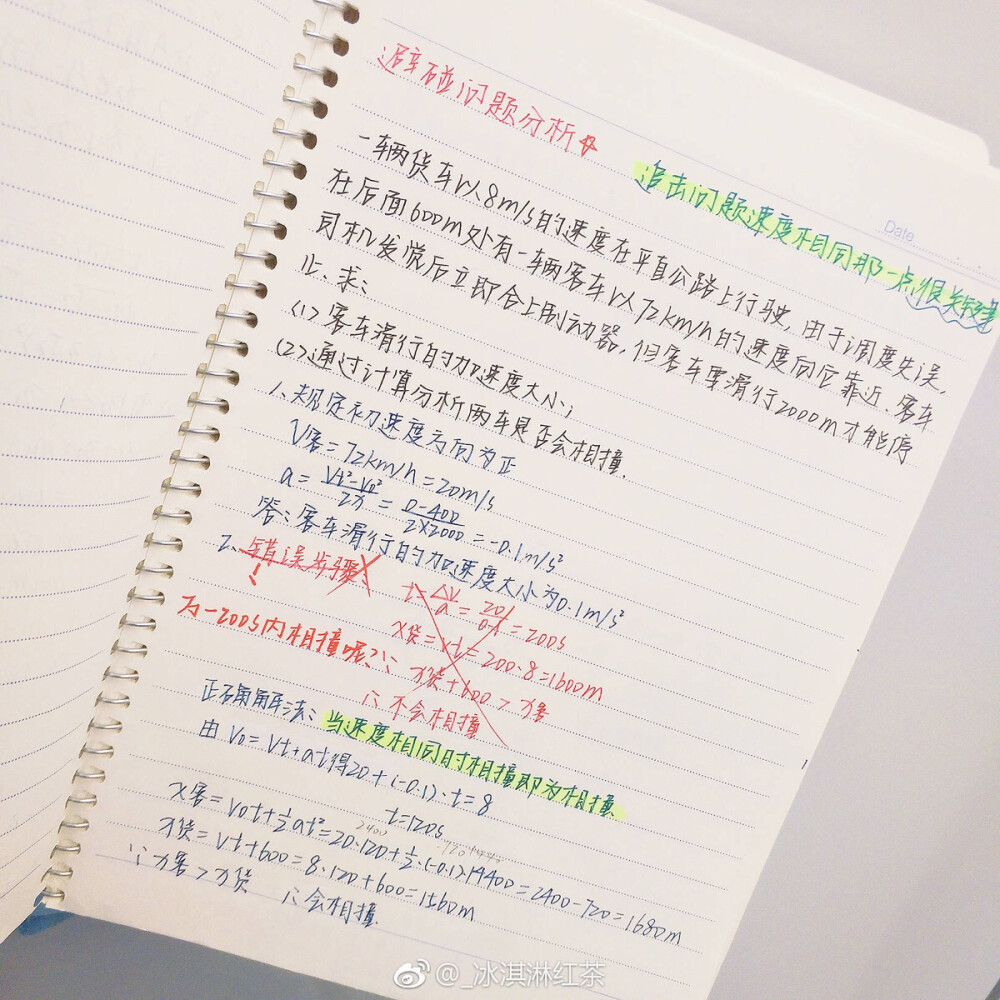 避碰问题分析
追击问题速度相同那一点,很关键
Date
一辆货车以8m/s的速度在平直公路上行驶,由于调度失误,
在后面600m处有一辆客车以72km/h的速度向它靠近.客车
司机发觉后立即合上制动器,但客车要滑行2000m才能停
止.求:
(1)客车滑行的加速度大小;
(2)通过计算分析两车是否会相撞.
1.规定初速度方向为正
V客=72km/h=20m/s
a=(Vt²-V0²)/2x=(0-400)/(2×2000)=-0.1m/s²
答:客车滑行的加速度大小为0.1m/s²
2.错误步骤
t=ΔV/a=20/0.1=200s
x货=vt=200·8=1600m
万一200s内相撞呢?
∵x货+600>x客
∴不会相撞
正确解法:当速度相同时相撞即为相撞.
由V0=Vt+at得20+(-0.1)·t=8
t=120s
x客=V0t+½at²=20·120+½·(-0.1)·14400=2400-720=1680m
x货=Vt+600=8·120+600=1560m
∵x客>x货 ∴会相撞.
@_冰淇淋红茶